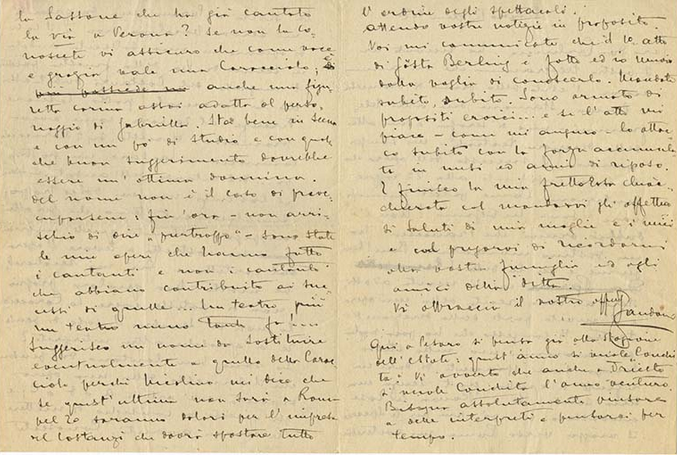 la Sassone che ha già cantato
la via a Verona? Se non la co-
noscete vi assicuro che come voce
e grazia vale una Caracciolo; E
anche una figu-
retta carina assai adatta al perso-
naggio di Gabriella. Sta bene in scena
e con un po' di studio e con qual
che buon suggerimento dovrebbe
essere un' ottima domina.
Del nome non è il caso di preoc-
cuparsene: fin' ora - non arri-
schio di dire "purtroppo" - sono state
le mie opere che hanno fatto
i cantanti e non i cantanti
che abbiano contribuito ai suc-
cessi di quelle... un teatro più
un teatro meno
Suggerisco un nome da sostituire
eventualmente a quello della Carac-
ciolo perchè Nicolino mi dice che
se quest' ultima non sarà a Roma
pel 20 saranno dolori per l'impresa
del Costanzi che dovrà spostare tutto
l'ordine degli spettacoli.
Attendo vostre notizie in proposito.
Voi mi comunicate che il 1o atto
di Gösta Berling è fatto ed io muoio
dalla voglia di conoscerlo. Mandate
subito, subito. Sono armato di
propositi eroici... e se l'atto mi
piace - come mi auguro - lo attac
co subito con la forza accumula-
ta in mesi ed anni di riposo.
E finisco la mia frettolosa chiac-
chierata col mandarvi gli affettuo
si saluti di mia moglie e i miei
e col pregarvi di ricordarmi
alla vostra famiglia ed agli
amici della ditta.
Vi abbraccio il vostro aff
Zandonai
Qui a Pesaro si pensa già alla stagione
dell' Estate: quest'anno si vuole "Conchi
ta". Vi avverto che anche a Trieste
si vuole Conchita l'anno venturo.
Bisogna assolutamente pensare
a delle interpreti e pensarci per
tempo.